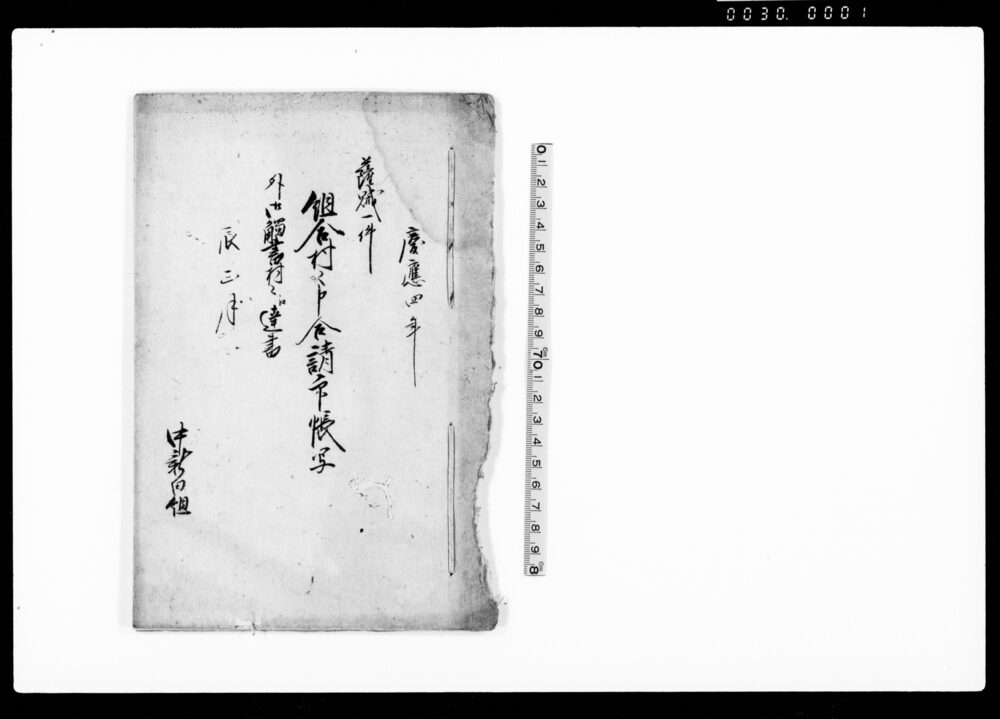 0030. 0001
慶應四年
薩賊一件
組合村々申合請印帳写
外ニ御觸書村々江達書
辰正月
中新田組
0 1 2 3 4 5 6 7 8 9 70 1 2 3 4 5 6 7 8 9 8